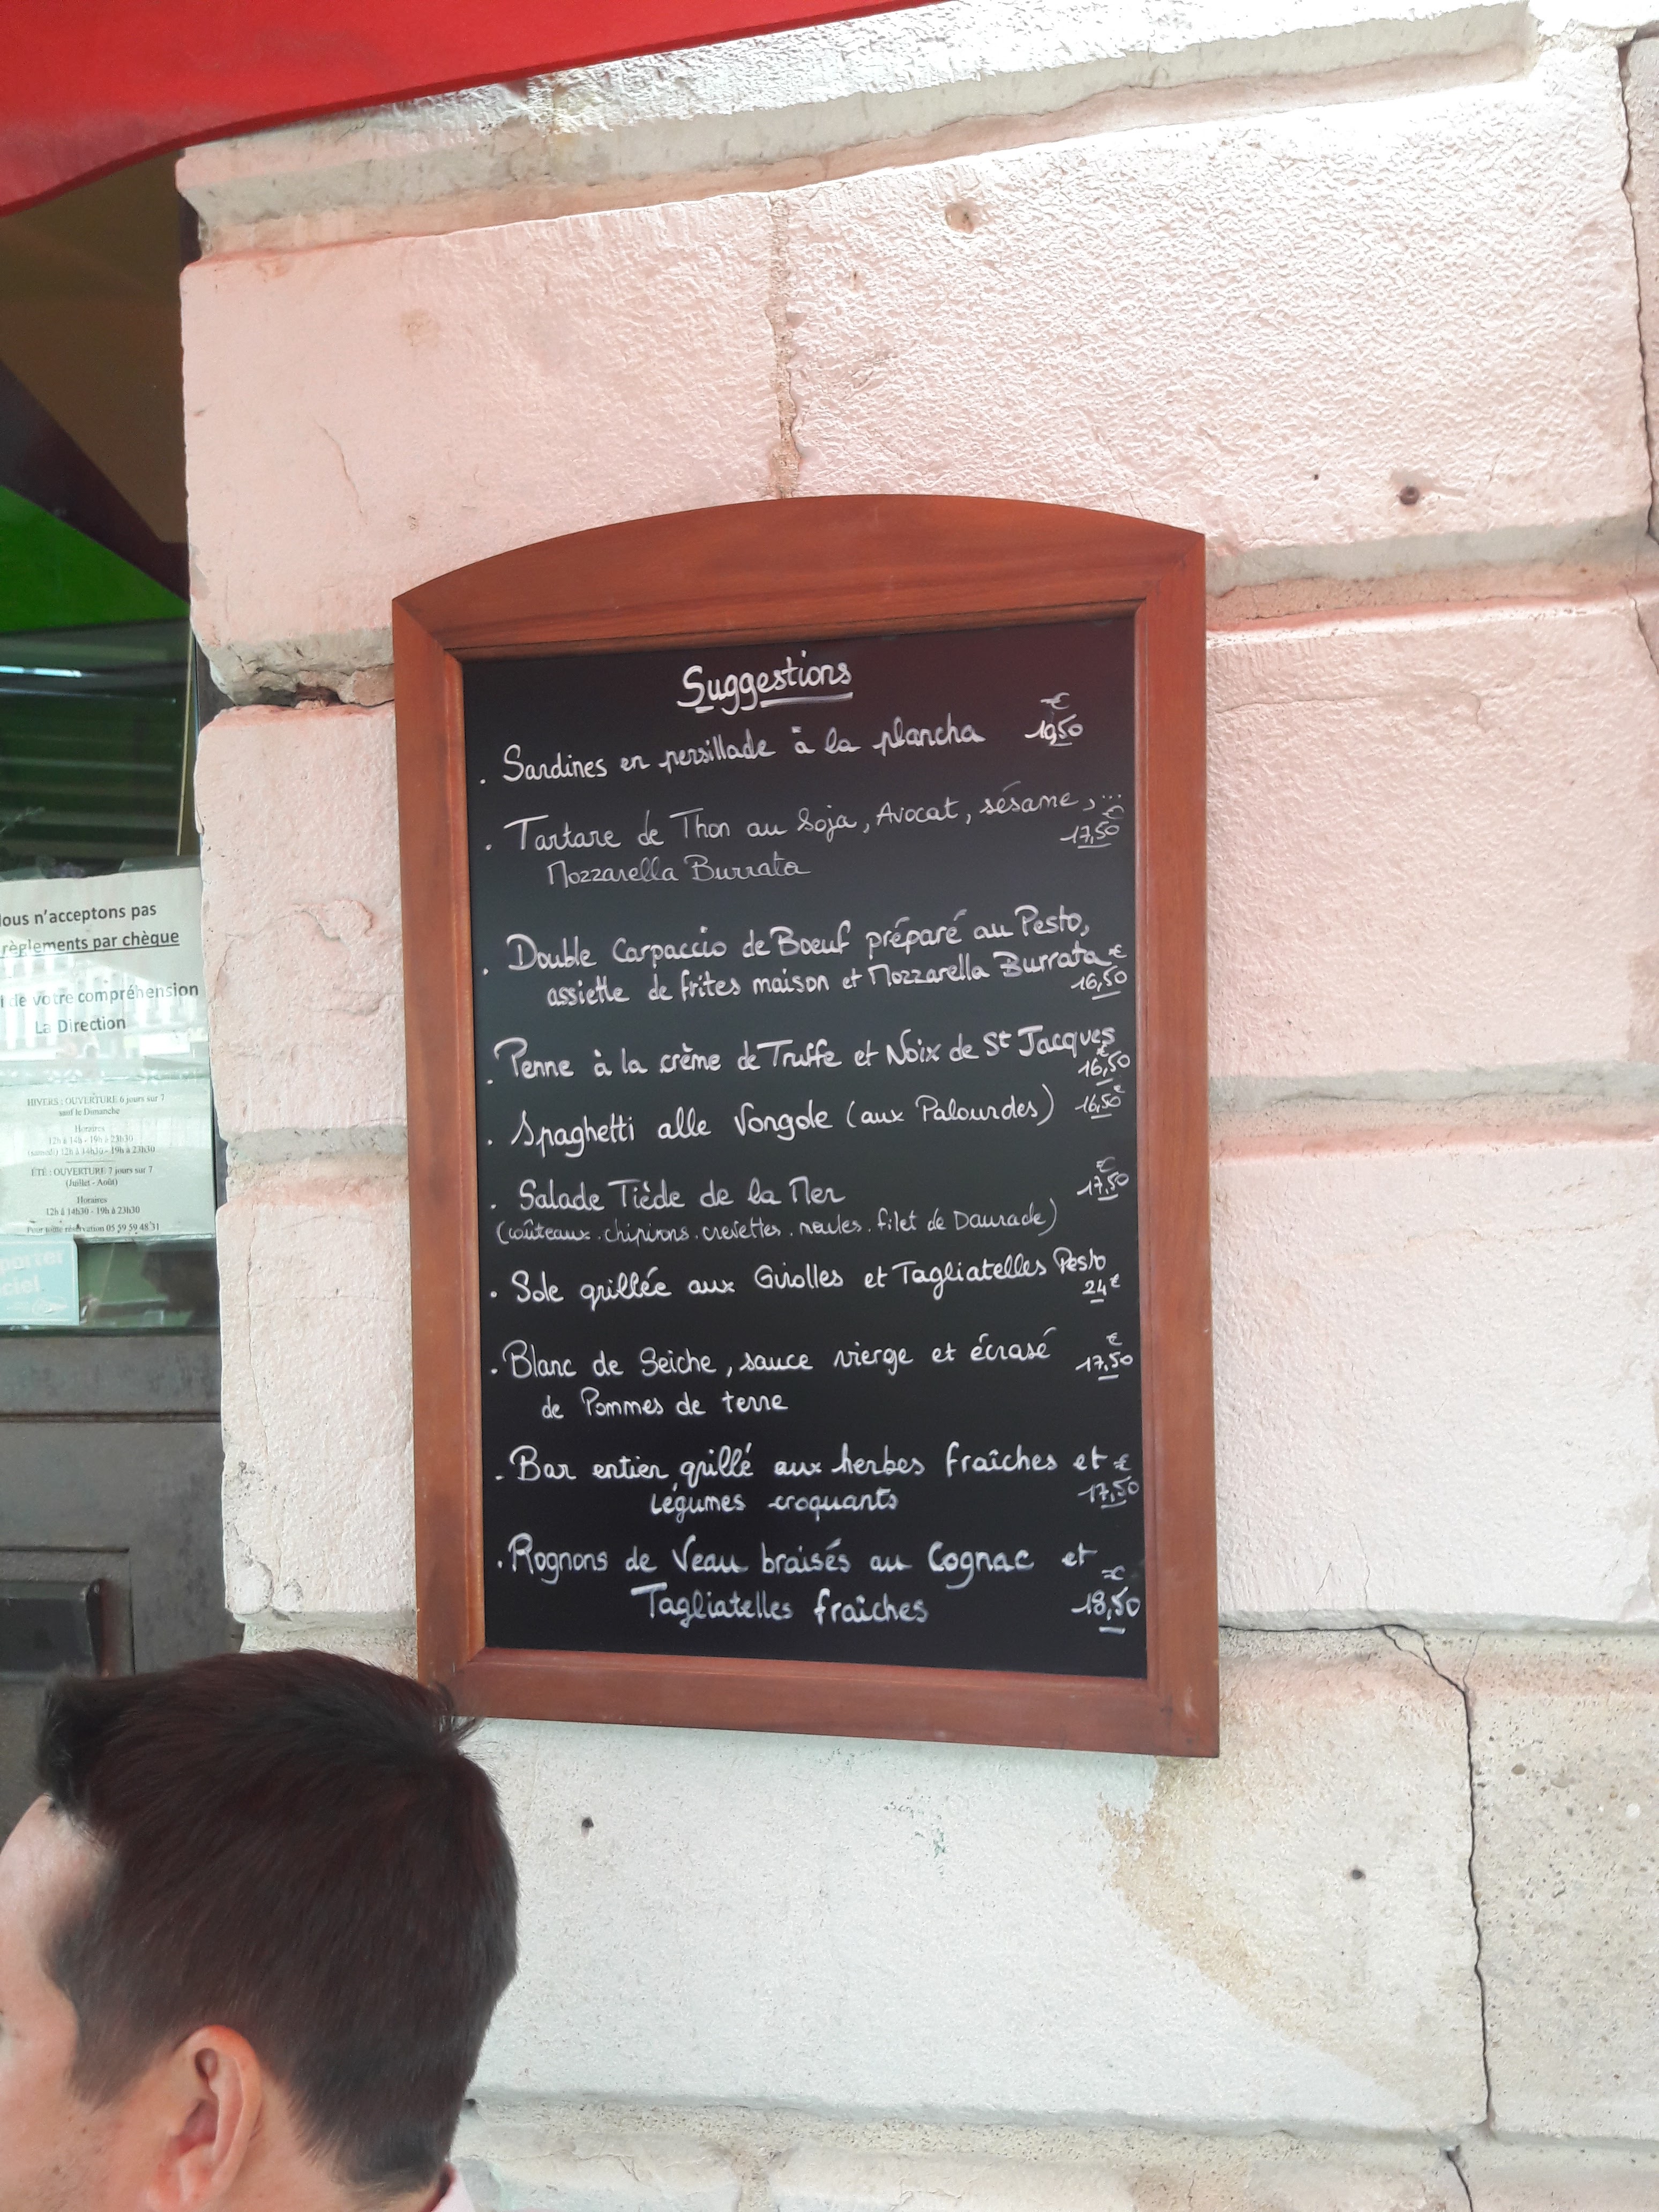 Suggestions
. Sardines en persillade à la plancha 10,50 €
. Tartare de Thon au Soja, Avocat, sésame,...
Mozzarella Burrata 17,50 €
. Double Carpaccio de Boeuf préparé au Pesto,
assiette de frites maison et Mozzarella Burrata 16,50 €
. Penne à la crème de Truffe et Noix de St Jacques 16,50 €
. Spaghetti alle Vongole (aux Palourdes) 16,50 €
. Salade Tiède de la Mer 17,50 €
(coûteaux. chipirons. crevettes. moules. filet de Daurade)
. Sole grillée aux Girolles et Tagliatelles Pesto
24 €
. Blanc de Seiche, sauce vierge et écrasé 17,50 €
de Pommes de terre
. Bar entier grillé aux herbes fraîches et
Légumes croquants 17,50 €
. Rognons de Veau braisés au Cognac et
Tagliatelles fraîches 18,50 €
ous n'acceptons pas
règlements par chèque
i de votre compréhension
La Direction
HIVERS : OUVERTURE 6 jours sur 7
sauf le Dimanche
Horaires
12h à 14h - 19h à 23h30
(samedi) 12h à 14h30 - 19h à 23h30
ÉTÉ : OUVERTURE 7 jours sur 7
(Juillet - Août)
Horaires
12h à 14h30 - 19h à 23h30
Pour toute réservation 05 59 59 48 31
porter
ciel